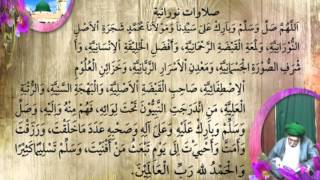 صلاوات نورانية
اَللّٰهُمَّ صَلِّ وَسَلِّمْ وَبَارِكْ عَلَىٰ سَيِّدِنَا وَمَوْلَانَا مُحَمَّدٍ شَجَرَةِ الْاَصْلِ
النُّوْرَانِيَّةِ، وَلَمْعَةِ الْقَبْضَةِ الرَّحْمَانِيَّةِ، وَأَفْضَلِ الْخَلِيْقَةِ الْاِنْسَانِيَّةِ، وَأَ
شْرَفِ الصُّوْرَةِ الْجَسْمَانِيَّةِ، وَمَعْدِنِ الْاَسْرَارِ الرَّبَّانِيَّةِ، وَخَزَائِنِ الْعُلُوْمِ
الْاِصْطِفَائِيَّةِ، صَاحِبِ الْقَبْضَةِ الْاَصْلِيَّةِ، وَالْبَهْجَةِ السَّنِيَّةِ، وَالرُّتْبَةِ
الْعَلِيَّةِ، مَنِ انْدَرَجَتِ النَّبِيُّوْنَ تَحْتَ لِوَائِهِ، فَهُمْ مِنْهُ وَاِلَيْهِ، وَصَلِّ
وَسَلِّمْ وَبَارِكْ عَلَيْهِ وَعَلَىٰ آلِهِ وَصَحْبِهِ عَدَدَ مَاخَلَقْتَ، وَرَزَقْتَ
وَأَمَتَّ وَأَحْيَيْتَ اِلَىٰ يَوْمِ تَبْعَثُ مَنْ أَفْنَيْتَ، وَسَلِّمْ تَسْلِيْمًا كَثِيْرًا
وَالْحَمْدُ لِلّٰهِ رَبِّ الْعَالَمِيْنَ